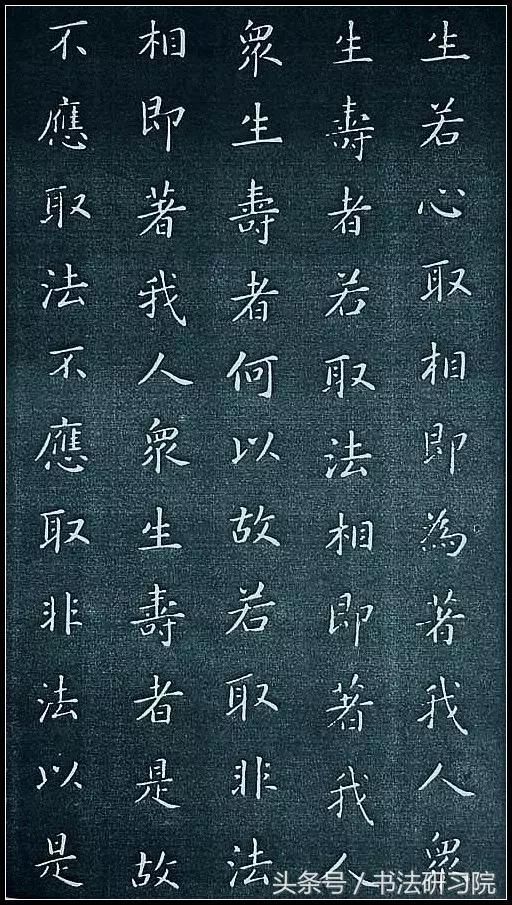 生若心取相即為著我人眾
生壽者若取法相即著我人
眾生壽者何以故若取非法
相即著我人眾生壽者是故
不應取法不應取非法以是
头条号／书法研习院